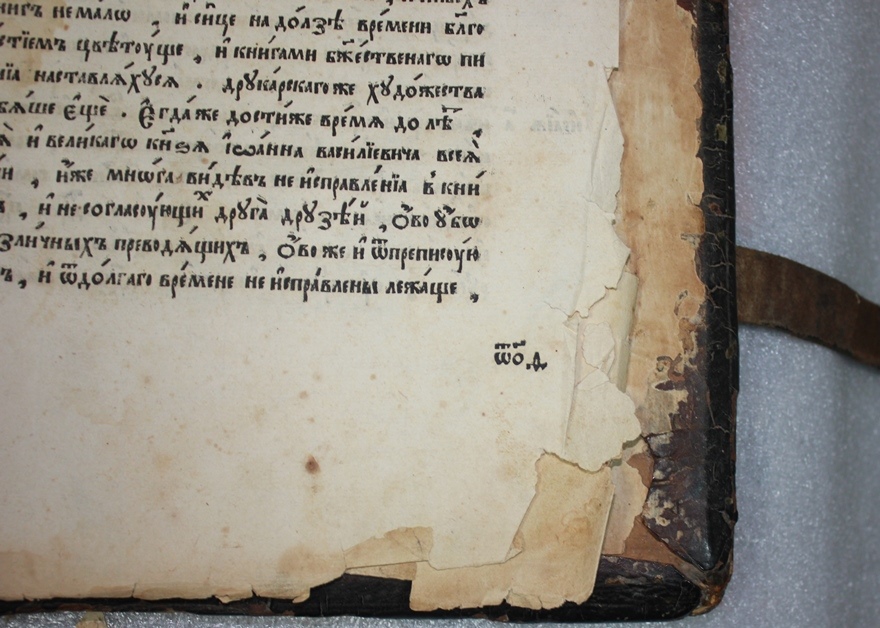 немалѡ , и҆ си́це на до́лзѣ вре́мени бл҃го
цвѣтоу́ще , и҆ кни́гами бж҃е́ственагѡ пи
наставлѧ́хусѧ . друка́рскагоже худо́жества
бѧ́ше є҆щѐ . Є҆гда́же дости́же вре́мѧ до лѣ
и҆ вели́кагѡ кнѕ҃ѧ і҆ѡа́нна васи́лїевича всеѧ̀
, и҆́же мнѡ́га ви́дѣвъ не и҆справле́нїа в̾ кни́
, и҆ не согласоу́ющихъ дру́га̀ друзѣ́й , ѻ҆́во ᲂу҆́бѡ
преводѧ́щихъ , ѻ҆́во же и҆ ѿпреписоу́ю
, и҆ ѿдо́лгаго вре́мене не и҆спра́влены лежа́ще ,
ѿѻ.д